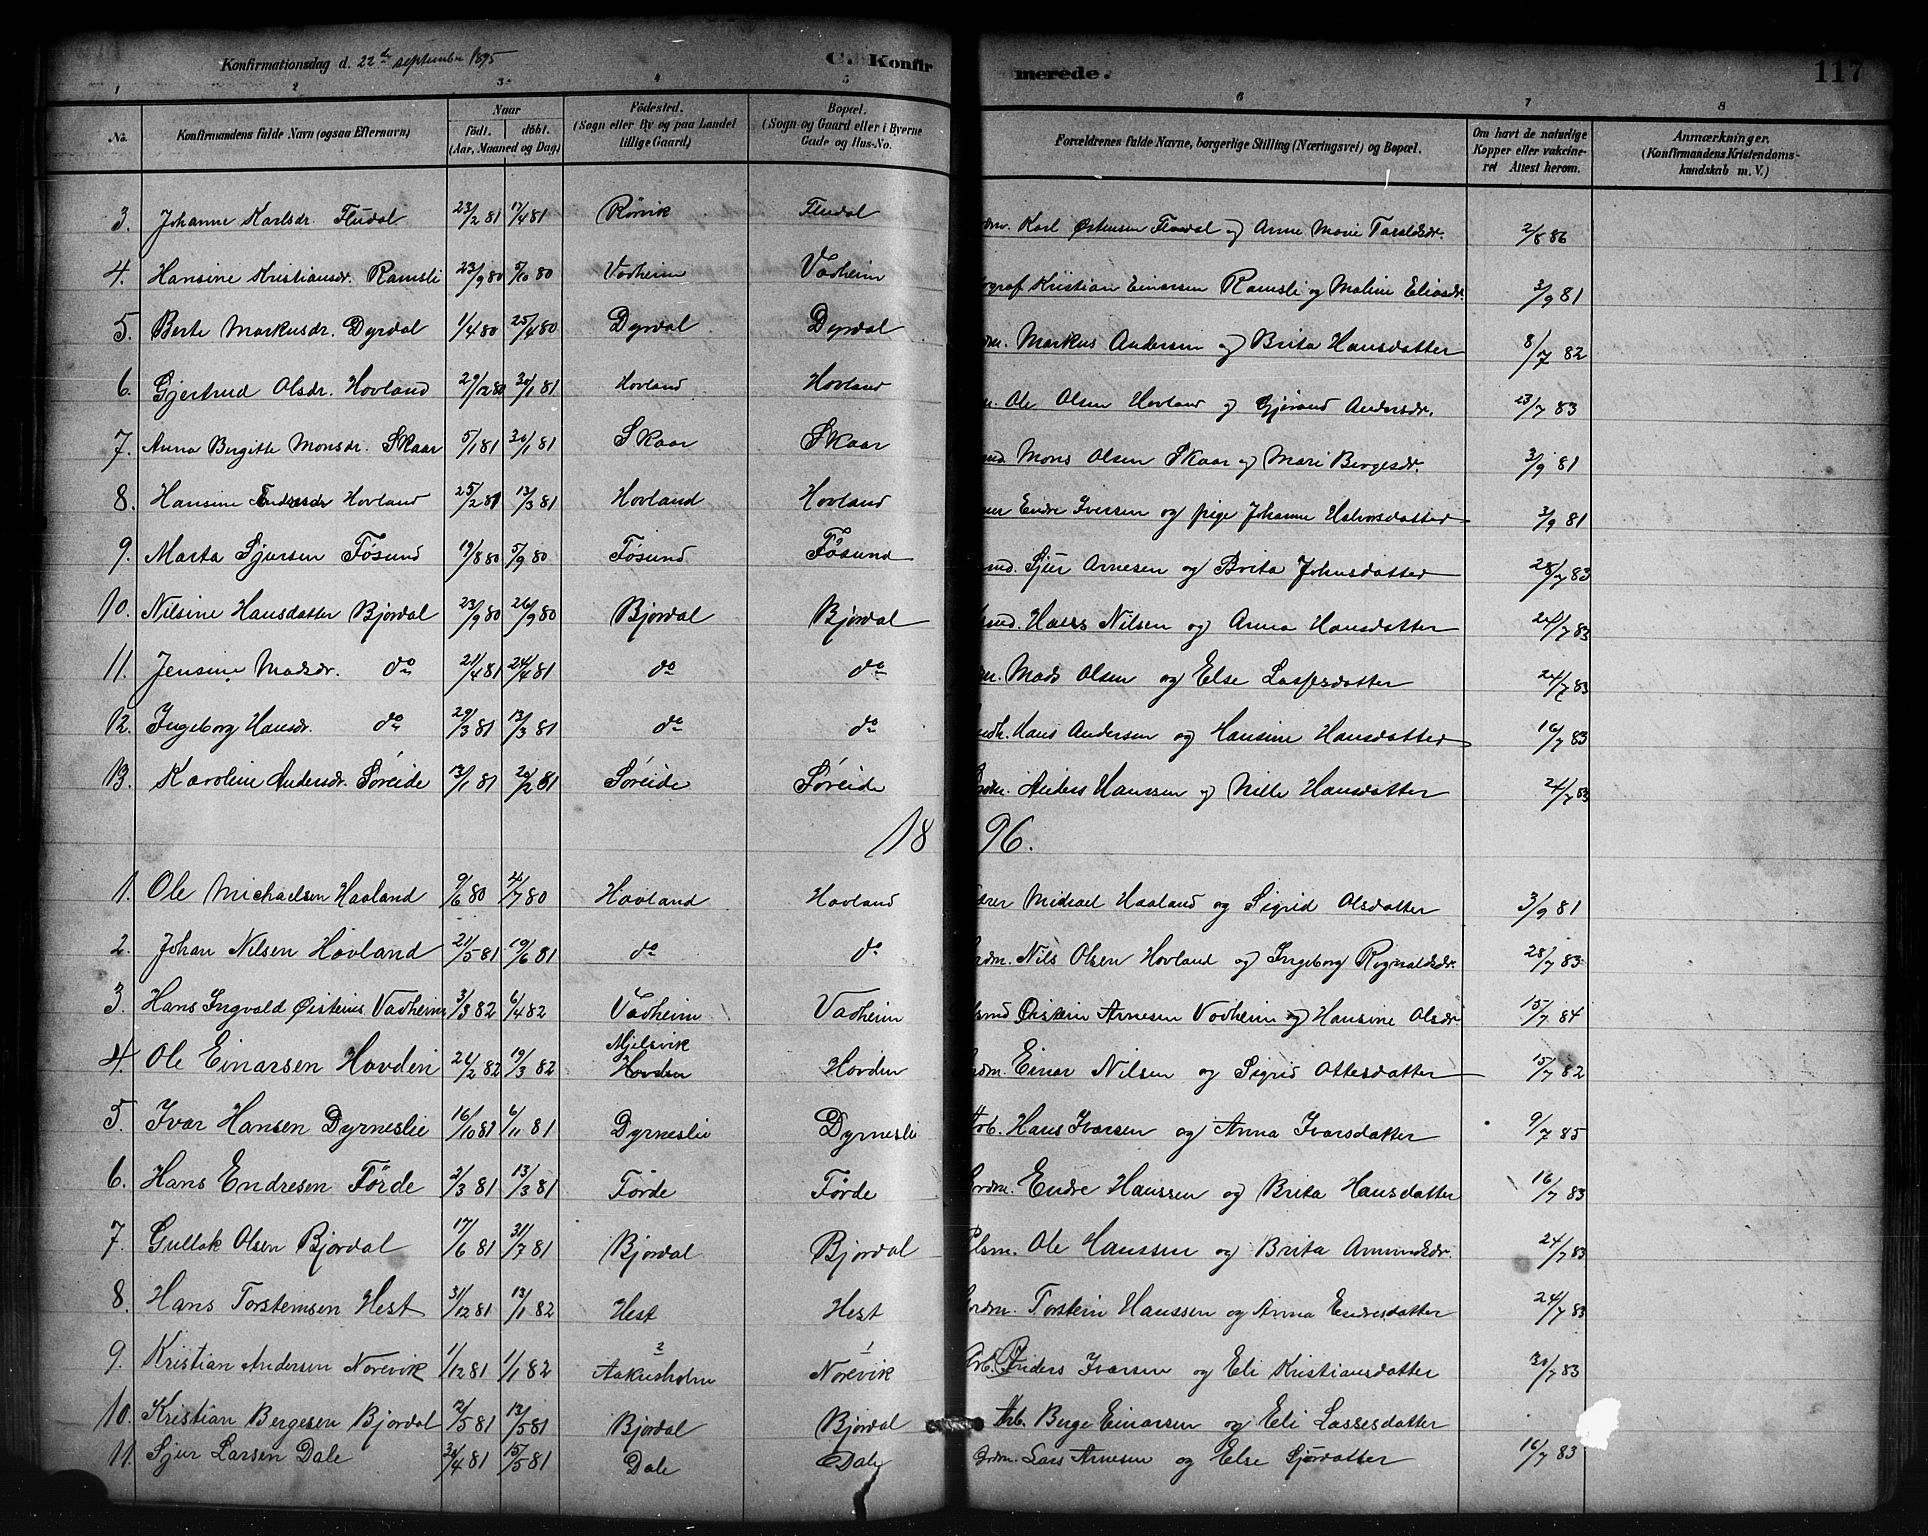 Konfirmationsdag d. 22de september 1895 C. Konfirmerede. 117
1 2 3 4 5 6 7 8
No. Konfirmandens fulde Navn (ogsaa Efternavn) Naar født. døbt. (Aar, Maaned og Dag) Fødested. (Sogn eller By og paa Landet tillige Gaard) Bopæl. (Sogn og Gaard eller i Byerne Gade og Hus-No. Forældrenes fulde Navne, borgerlige Stilling (Næringsvei) og Bopæl. Om havt de naturlige Kopper eller vakcineret Attest herom. Anmærkninger. (Konfirmandens Kristendomskundskab m. V.)
3. Johanne Karlsdr. Fludal 23/2 81 17/4 81 Rørvik Fludal Karl Østensen Fludal og Anne Marie Taraldsdr. 2/8 86
4. Hansine Kristiansdr. Ramsli 23/9 80 5/10 80 Vadheim Vadheim Kristian Einarsen Ramsli og Maline Eliasdr. 3/9 81
5. Berte Markusdr. Dyrdal 1/4 80 25/4 80 Dyrdal Dyrdal Markus Andersen og Brita Hansdatter 8/7 82
6. Gjertrud Olsdr. Hovland 29/12 80 30/1 81 Hovland Hovland Ole Olsen Hovland og Gjørand Andersdr. 23/7 83
7. Anna Bergitte Monsdr. Skaar 5/1 81 30/1 81 Skaar Skaar Mons Olsen Skaar og Mari Bergesdr. 3/9 81
8. Hansine Endresdr Hovland 25/2 81 13/3 81 Hovland Hovland Endre Iversen og pige Johanne Halvorsdatter 3/9 81
9. Marta Sjursen Føsund 19/8 80 5/9 80 Føsund Føsund Sjur Arnesen og Brita Johnsdatter 28/7 83
10. Nilsine Hansdatter Bjørdal 23/9 80 26/9 80 Bjørdal Bjørdal Hans Nilsen og Anna Hansdatter 24/7 83
11. Jensine Madsdr. do 21/4 81 24/4 81 do do Mads Olsen og Else Lassesdatter 24/7 83
12. Ingeborg Hansdr. do 29/3 81 13/3 81 do do Hans Andersen og Hansine Hansdatter 16/7 83
13. Karoline Andersdr. Søreide 13/1 81 20/2 81 Søreide Søreide Anders Hanssen og Nille Hansdatter 24/7 83
1896.
1. Ole Michaelsen Haaland 9/6 80 /7 80 Hovland Hovland Michael Haaland og Sigrid Olsdatter 3/9 81
2. Johan Nilsen Hovland 21/5 81 19/6 81 do do Nils Olsen Hovland og Ingeborg Rognaldsdr. 28/7 83
3. Hans Ingvald Øisteins. Vadheim 3/3 82 6/4 82 Vadheim Vadheim Øistein Arnesen Vadheim og Hansine Olsdr. 15/7 84
4. Ole Einarsen Hovden 26/2 82 19/3 82 Mjelsvik Hovden Hovden Einar Nilsen og Sigrid Ottesdatter 15/7 82
5. Ivar Hansen Dyrneslie 16/10 81 6/11 81 Dyrneslie Dyrnesli Arb. Hans Ivarsen og Anna Ivarsdatter 9/7 85
6. Hans Endresen Førde 2/3 81 13/3 81 Førde Førde Grdm. Endre Hanssen og Brita Hansdatter 16/7 83
7. Gullak Olsen Bjordal 17/6 81 31/7 81 Bjordal Bjordal Ole Hanssen og Brita Amundsdr. 24/7 83
8. Hans Torsteinsen Hest 31/12 81 13/1 82 Hest Hest Grdm. Torstein Hanssen og Anna Endresdatter 24/7 83
9. Kristian Andersen Norevik 1/12 81 1/1 82 2 Aakresholm 1 Norevik Arb. Anders Ivarsen og Eli Kristiansdatter 30/7 83
10. Kristian Bergesen Bjordal /5 81 13/5 81 Bjordal Bjordal Arb. Berge Einarsen og Eli Lassesdatter
11. Sjur Larsen Dale 30/4 81 15/5 81 Dale Dale Grdm. Lars Arnesen og Else Sjurdatter 16/7 83